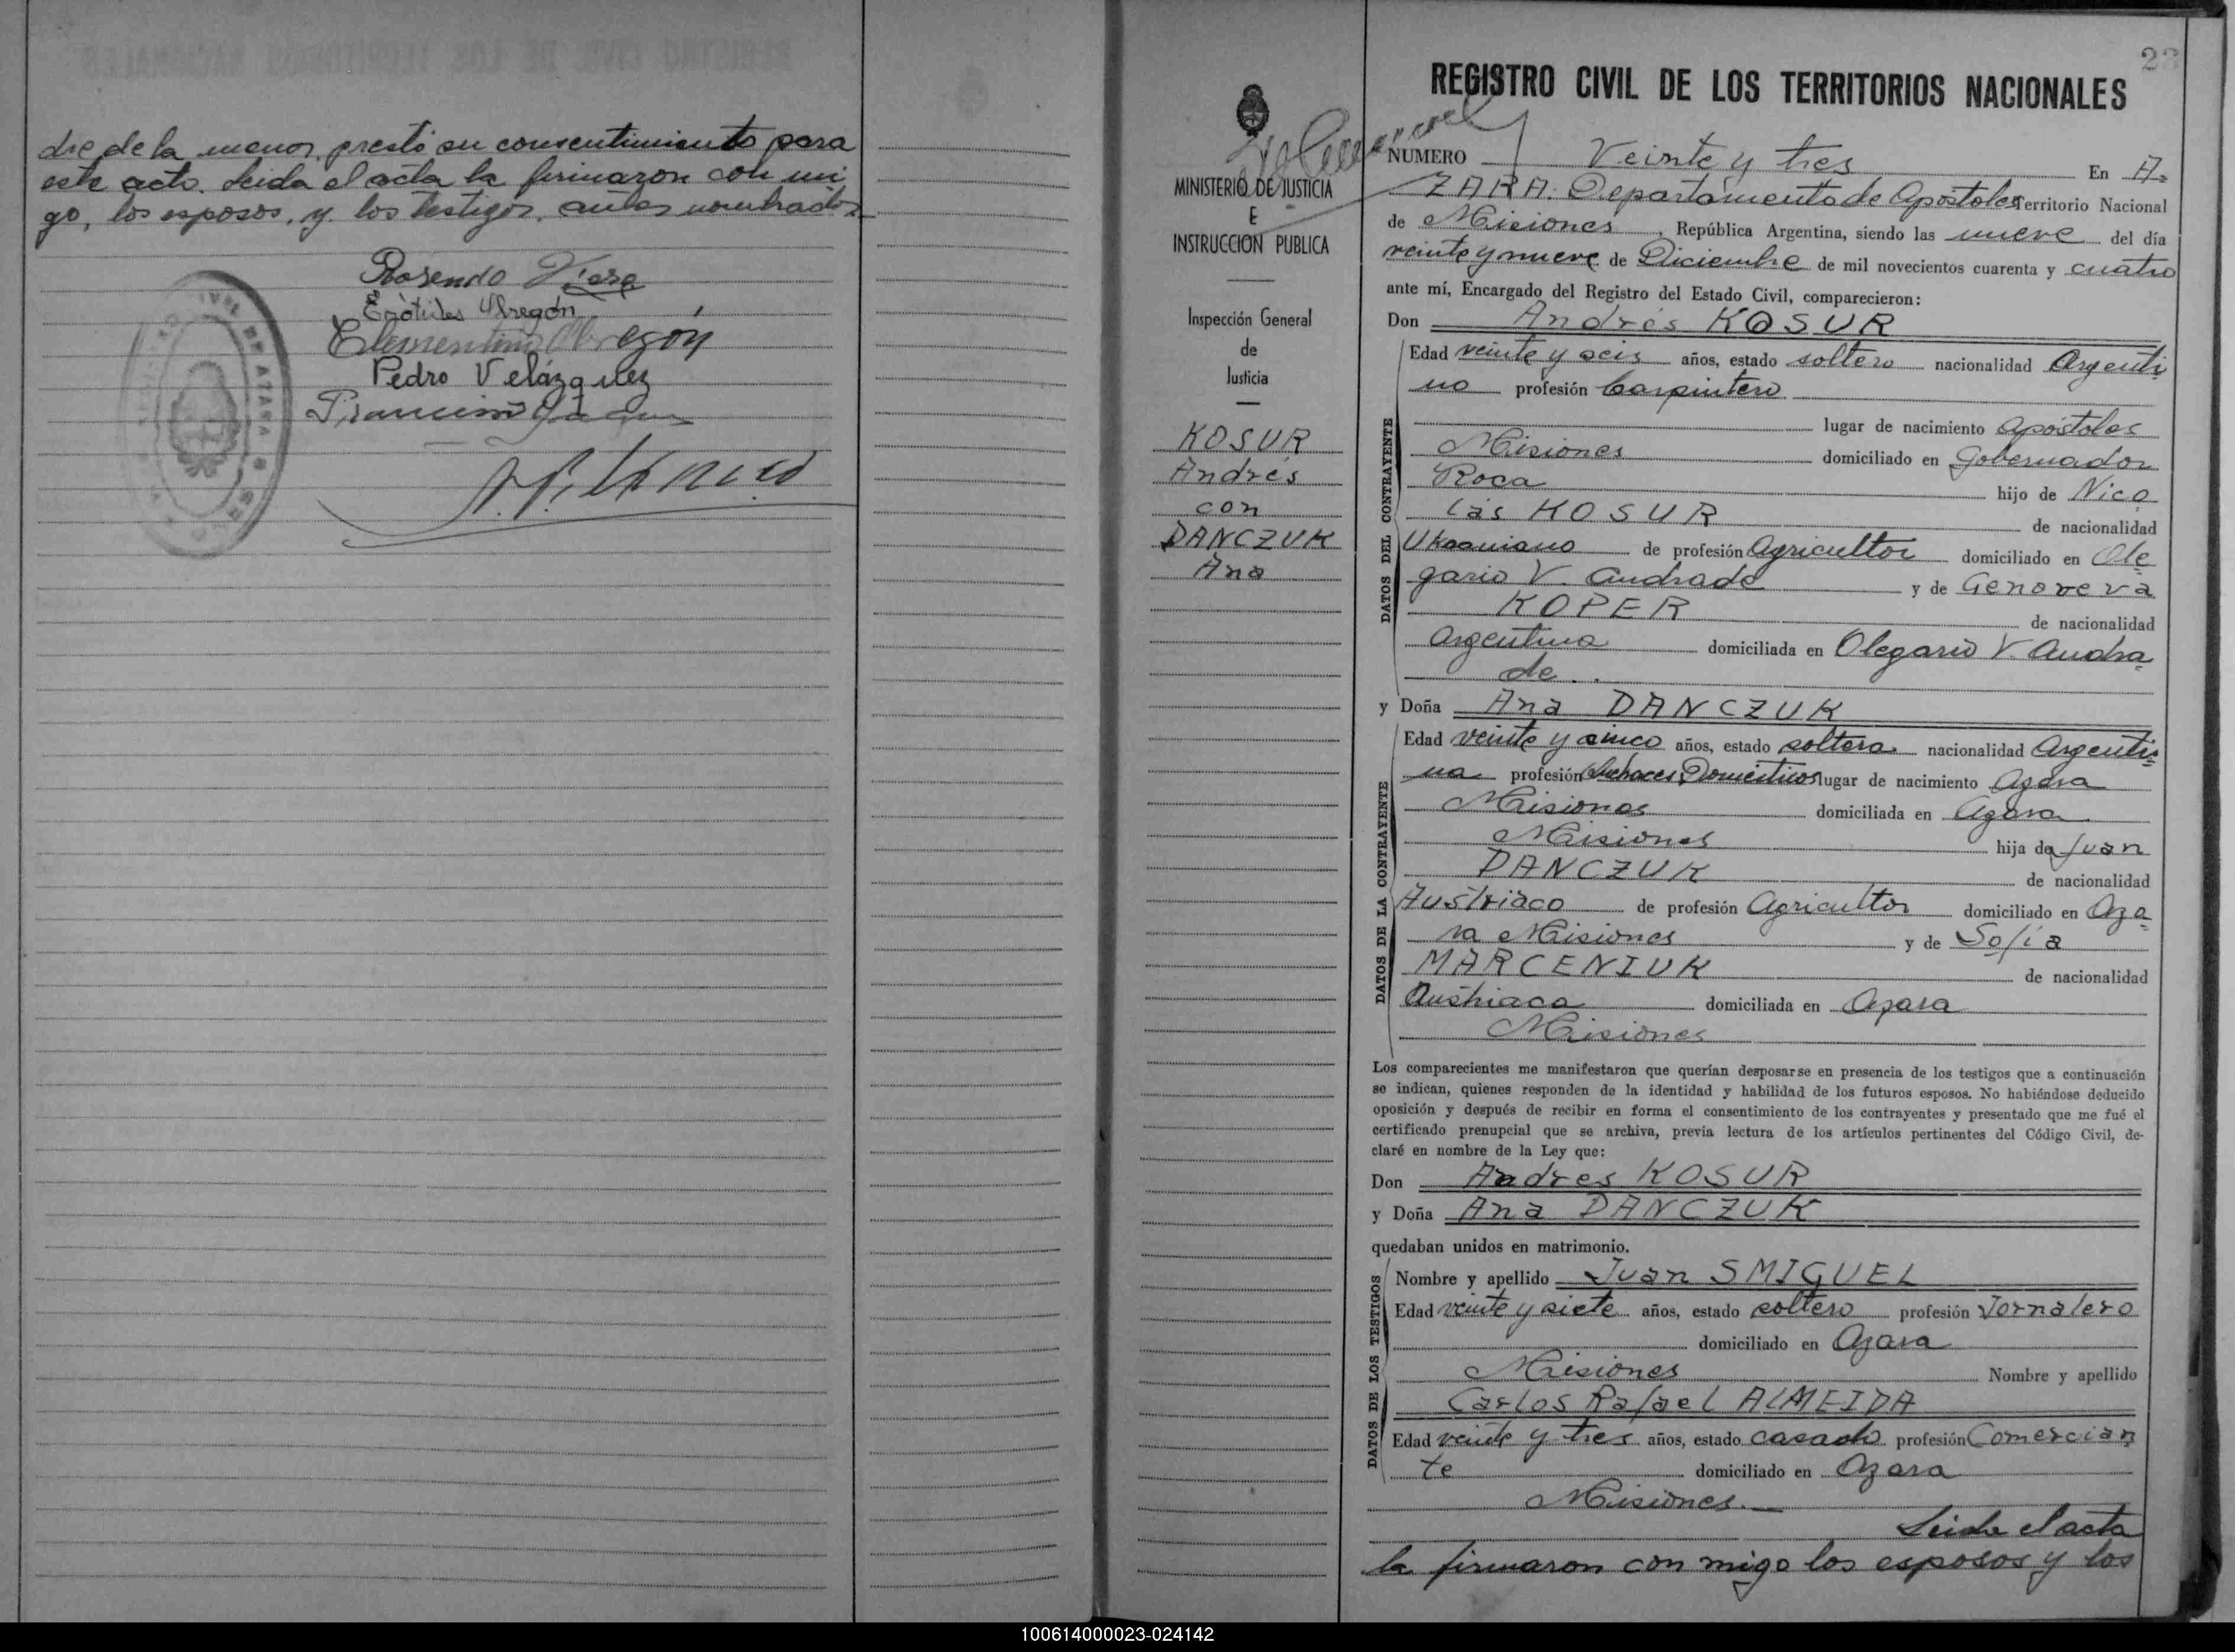 dre de la menor, prestó su consentimiento para
este acto. Leida el acta la firmaron con mi
go, los esposos, y los testigos, antes nombrados
Rosendo Viera
Eròtides Obregón
Clementina Obregón
Pedro Velázquez
23
REGISTRO CIVIL DE LOS TERRITORIOS NACIONALES
MINISTERIO DE JUSTICIA
E
INSTRUCCION PUBLICA
Inspección General
de
Justicia
KOSUR
Andrés
con
DANCZUK
Ana
NUMERO Veinte y tres En A=
ZARA: Departamento de Apóstoles Territorio Nacional
de Misiones, República Argentina, siendo las nueve del día
veinte y nueve de Diciembre de mil novecientos cuarenta y cuatro
ante mí, Encargado del Registro del Estado Civil, comparecieron:
Don Andrés KOSUR
DATOS DEL CONTRAYENTE
Edad veinte y seis años, estado soltero nacionalidad Argenti
no profesión Carpintero
lugar de nacimiento Apóstoles
Misiones domiciliado en Gobernador
Roca hijo de Nico
lás KOSUR de nacionalidad
Ukraniano de profesión Agricultor domiciliado en Ole=
gario V. Andrade y de Genoveva
KOPER de nacionalidad
Argentina domiciliada en Olegario V. Andra=
de..
y Doña Ana DANCZUK
DATOS DE LA CONTRAYENTE
Edad veinte y cinco años, estado soltera nacionalidad Argenti=
na profesión Quehaceres Domésticos lugar de nacimiento Azara
Misiones domiciliada en Azara
Misiones hija de Juan
DANCZUK de nacionalidad
Austriaco de profesión Agricultor domiciliado en Aza=
ra Misiones y de Sofia
MARCENIUK de nacionalidad
Austriaca domiciliada en Azara
Misiones
Los comparecientes me manifestaron que querían desposarse en presencia de los testigos que a continuación
se indican, quienes responden de la identidad y habilidad de los futuros esposos. No habiéndose deducido
oposición y después de recibir en forma el consentimiento de los contrayentes y presentado que me fué el
certificado prenupcial que se archiva, previa lectura de los artículos pertinentes del Código Civil, de-
claré en nombre de la Ley que:
Don Andres KOSUR
y Doña Ana DANCZUK
quedaban unidos en matrimonio.
DATOS DE LOS TESTIGOS
Nombre y apellido Juan SMIGUEL
Edad veinte y siete años, estado soltero profesión Jornalero
domiciliado en Azara
Misiones Nombre y apellido
Carlos Rafael ALMEIDA
Edad veinte y tres años, estado casado profesión Comercian
te domiciliado en Azara
Misiones.—
Leida el acta
la firmaron con migo los esposos y los
100614000023-024142